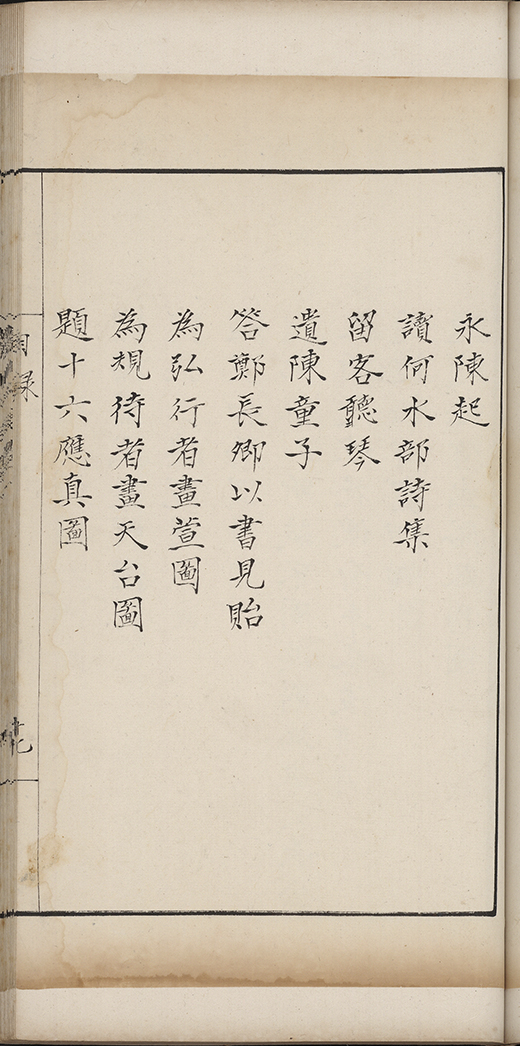 永陳起
讀何水部詩集
留客聽琴
遺陳童子
答鄭長卿以書見貽
為弘行者畫萱圖
為規待者畫天台圖
題十六應真圖
目录